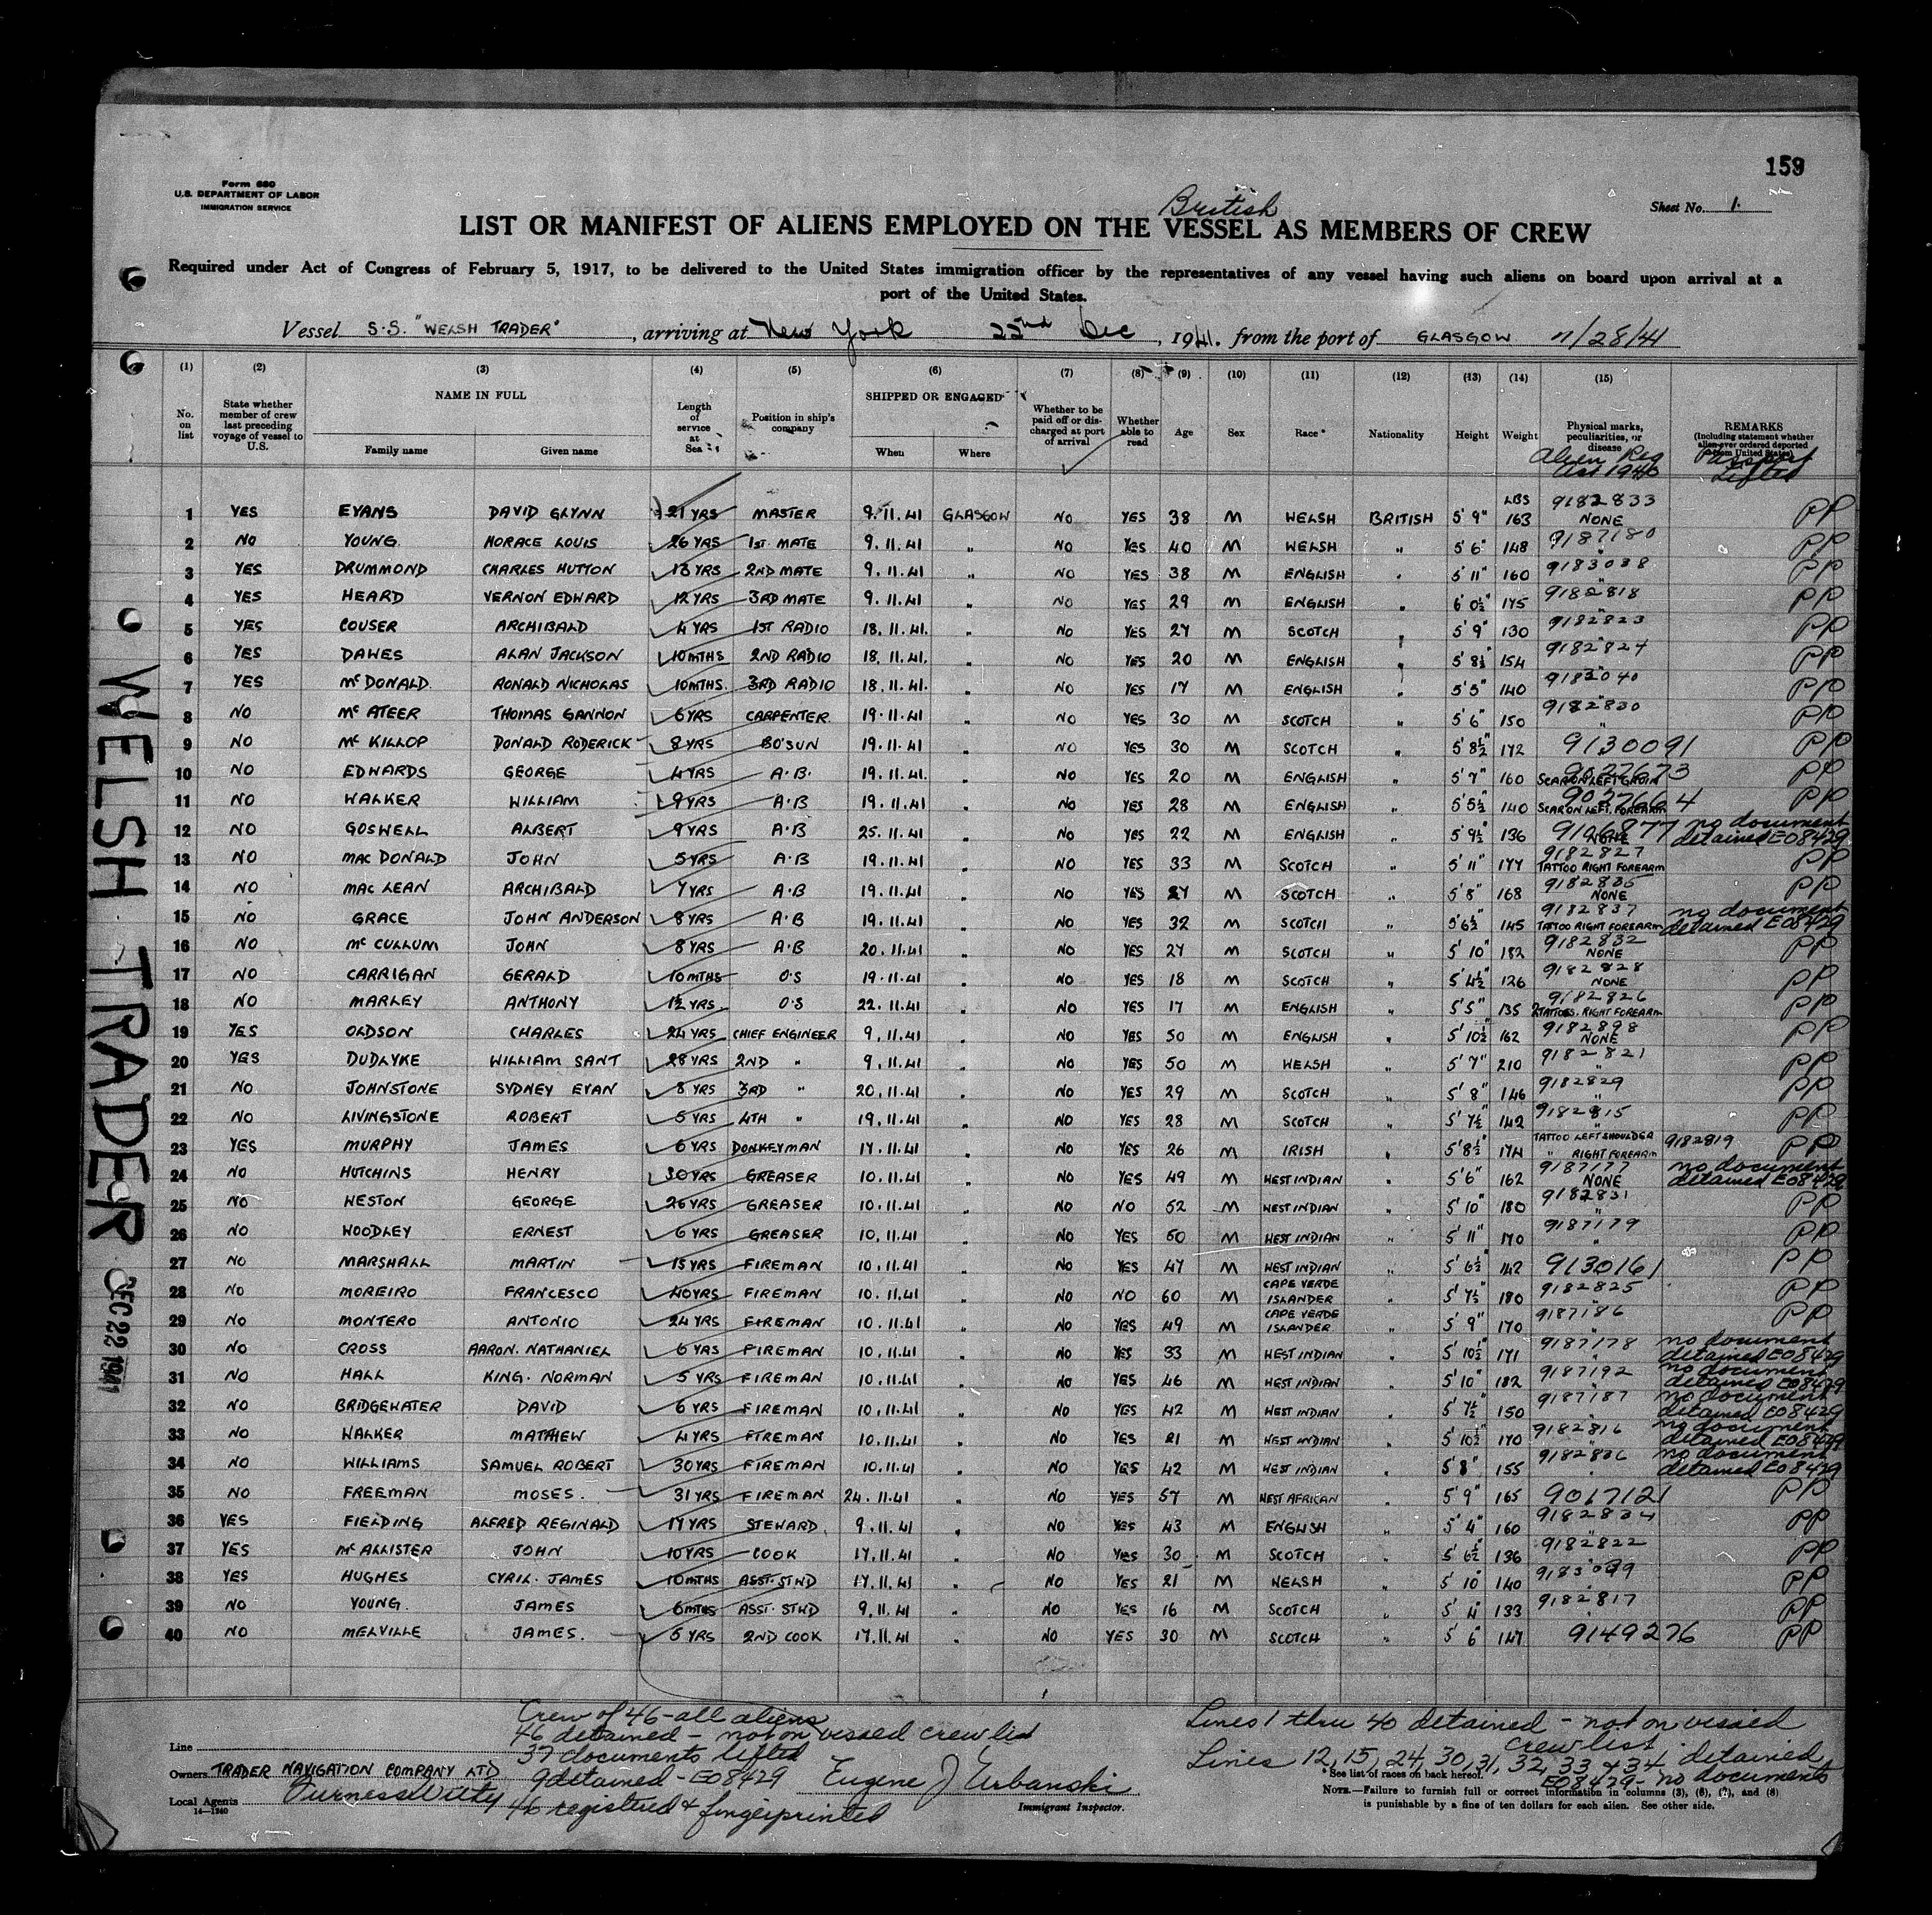 159
Form 680
U.S. DEPARTMENT OF LABOR
IMMIGRATION SERVICE
Sheet No. 1.
British
LIST OR MANIFEST OF ALIENS EMPLOYED ON THE VESSEL AS MEMBERS OF CREW
Required under Act of Congress of February 5, 1917, to be delivered to the United States immigration officer by the representatives of any vessel having such aliens on board upon arrival at a
port of the United States.
Vessel S.S. "WELSH TRADER", arriving at New York 22nd Dec, 1941. from the port of GLASGOW 11/28/41
(1) (2) (3) (4) (5) (6) (7) (8) (9) (10) (11) (12) (13) (14) (15)
No. on list State whether member of crew last preceding voyage of vessel to U.S. NAME IN FULL Family name Given name Length of service at Sea Position in ship's company SHIPPED OR ENGAGED When Where Whether to be paid off or discharged at port of arrival Whether able to read Age Sex Race* Nationality Height Weight Physical marks, peculiarities, or disease REMARKS (Including statement whether alien ever ordered deported from United States)
Alien Reg Act 1940 Passport Lifted
1 YES EVANS DAVID GLYNN 21 YRS MASTER 9.11.41 GLASGOW NO YES 38 M WELSH BRITISH 5' 9" LBS 163 9182833 NONE PP
2 NO YOUNG HORACE LOUIS 26 YRS 1ST MATE 9.11.41 " NO YES 40 M WELSH " 5' 6" 148 9187180 " PP
3 YES DRUMMOND CHARLES HUTTON 13 YRS 2ND MATE 9.11.41 " NO YES 38 M ENGLISH " 5' 11" 160 9183038 " PP
4 YES HEARD VERNON EDWARD 12 YRS 3RD MATE 9.11.41 " NO YES 29 M ENGLISH " 6' 0½" 175 9182818 " PP
5 YES COUSER ARCHIBALD 4 YRS 1ST RADIO 18.11.41. " NO YES 27 M SCOTCH " 5' 9" 130 9182823 " PP
6 YES DAWES ALAN JACKSON 10 MTHS 2ND RADIO 18.11.41. " NO YES 20 M ENGLISH " 5' 8½" 154 9182824 " PP
7 YES McDONALD RONALD NICHOLAS 10 MTHS. 3RD RADIO 18.11.41. " NO YES 17 M ENGLISH " 5' 5" 140 9183040 " PP
8 NO McATEER THOMAS GANNON 6 YRS CARPENTER 19.11.41 " NO YES 30 M SCOTCH " 5' 6" 150 9182830 " PP
9 NO McKILLOP DONALD RODERICK 8 YRS BO'SUN 19.11.41 " NO YES 30 M SCOTCH " 5' 8½" 172 9130091 PP
10 NO EDWARDS GEORGE 4 YRS A.B. 19.11.41. " NO YES 20 M ENGLISH " 5' 7" 160 9027673 SCAR ON LEFT GROIN PP
11 NO WALKER WILLIAM 9 YRS A.B 19.11.41 " NO YES 28 M ENGLISH " 5' 5½" 140 9027664 SCAR ON LEFT. FOREARM PP
12 NO GOSWELL ALBERT 9 YRS A.B 25.11.41 " NO YES 22 M ENGLISH " 5' 9½" 136 9106877 NONE no document detained E08429
13 NO MACDONALD JOHN 5 YRS A.B 19.11.41 " NO YES 33 M SCOTCH " 5' 11" 177 9182827 TATTOO RIGHT FOREARM PP
14 NO MACLEAN ARCHIBALD 7 YRS A.B 19.11.41 " NO YES 27 M SCOTCH " 5' 8" 168 9182835 NONE PP
15 NO GRACE JOHN ANDERSON 8 YRS A.B 19.11.41 " NO YES 32 M SCOTCH " 5' 6½" 145 9182837 TATTOO RIGHT FOREARM no document detained E08429
16 NO McCULLUM JOHN 8 YRS A.B 20.11.41 " NO YES 27 M SCOTCH " 5' 10" 182 9182832 NONE PP
17 NO CARRIGAN GERALD 10 MTHS O.S 19.11.41 " NO YES 18 M SCOTCH " 5' 4½" 126 9182828 NONE PP
18 NO MARLEY ANTHONY 1½ YRS O.S 22.11.41 " NO YES 17 M ENGLISH " 5' 5" 135 9182826 2 TATTOES. RIGHT FOREARM PP
19 YES OLDSON CHARLES 24 YRS CHIEF ENGINEER 9.11.41 " NO YES 50 M ENGLISH " 5' 10½" 162 9182898 NONE PP
20 YES DUDLYKE WILLIAM SANT 28 YRS 2ND " 9.11.41 " NO YES 50 M WELSH " 5' 7" 210 9182821 " PP
21 NO JOHNSTONE SYDNEY EVAN 8 YRS 3RD " 20.11.41 " NO YES 29 M SCOTCH " 5' 8" 146 9182829 " PP
22 NO LIVINGSTONE ROBERT 5 YRS 4TH " 19.11.41 " NO YES 28 M SCOTCH " 5' 7½" 142 9182815 " PP
23 YES MURPHY JAMES 6 YRS DONKEYMAN 17.11.41 " NO YES 26 M IRISH " 5' 8½" 174 TATTOO LEFT SHOULDER " RIGHT FOREARM 9182819 PP
24 NO HUTCHINS HENRY 30 YRS GREASER 10.11.41 " NO YES 49 M WEST INDIAN " 5' 6" 162 9187177 NONE no document detained E08429
25 NO WESTON GEORGE 26 YRS GREASER 10.11.41 " NO NO 52 M WEST INDIAN " 5' 10" 180 9182831 " PP
26 NO WOODLEY ERNEST 6 YRS GREASER 10.11.41 " NO YES 50 M WEST INDIAN " 5' 11" 170 9187179 " PP
27 NO MARSHALL MARTIN 15 YRS FIREMAN 10.11.41 " NO YES 47 M WEST INDIAN " 5' 6½" 142 9130161 PP
28 NO MOREIRO FRANCESCO 40 YRS FIREMAN 10.11.41 " NO NO 60 M CAPE VERDE ISLANDER " 5' 7½" 180 9182825 PP
29 NO MONTERO ANTONIO 24 YRS FIREMAN 10.11.41 " NO YES 49 M CAPE VERDE ISLANDER " 5' 9" 170 9187186 PP
30 NO CROSS AARON. NATHANIEL 6 YRS FIREMAN 10.11.41 " NO YES 33 M WEST INDIAN " 5' 10½" 171 9187178 no document detained E08429
31 NO HALL KING. NORMAN 5 YRS FIREMAN 10.11.41 " NO YES 46 M WEST INDIAN " 5' 10" 182 9187192 no document detained E08429
32 NO BRIDGEWATER DAVID 6 YRS FIREMAN 10.11.41 " NO YES 42 M WEST INDIAN " 5' 7½" 150 9187187 no document detained E08429
33 NO WALKER MATTHEW 4 YRS FIREMAN 10.11.41 " NO YES 21 M WEST INDIAN " 5' 10½" 170 9182816 no document detained E08429
34 NO WILLIAMS SAMUEL ROBERT 30 YRS FIREMAN 10.11.41 " NO YES 42 M WEST INDIAN " 5' 8" 155 9182836 no document detained E08429
35 NO FREEMAN MOSES. 31 YRS FIREMAN 24.11.41 " NO YES 57 M WEST AFRICAN " 5' 9" 165 9017121 PP
36 YES FIELDING ALFRED REGINALD 17 YRS STEWARD 9.11.41 " NO YES 43 M ENGLISH " 5' 4" 160 9182834 PP
37 YES McALLISTER JOHN 10 YRS COOK 17.11.41 " NO YES 30 M SCOTCH " 5' 6½" 136 9182822 PP
38 YES HUGHES CYRIL. JAMES 10 MTHS ASST. STWD 17.11.41 " NO YES 21 M WELSH " 5' 10" 140 9183039 PP
39 NO YOUNG. JAMES 6 MTHS ASST. STWD 9.11.41 " NO YES 16 M SCOTCH " 5' 4" 133 9182817 PP
40 NO MELVILLE JAMES. 5 YRS 2ND COOK 17.11.41 " NO YES 30 M SCOTCH " 5' 6" 147 9149276 PP
WELSH TRADER
DEC 22 1941
Crew of 46 - all aliens
46 detained - not on visaed crew list
37 documents lifted
9 detained - E08429
46 registered & fingerprinted
Line
Owners TRADER NAVIGATION COMPANY LTD
Local Agents Furness Withy
14-1240
Eugene J Urbanski
Immigrant Inspector.
Lines 1 thru 40 detained - not on visaed
crew list
Lines 12, 15, 24, 30, 31, 32, 33 & 34 detained
E08429 - no documents
* See list of races on back hereof.
NOTE.—Failure to furnish full or correct information in columns (3), (6), (7), and (8)
is punishable by a fine of ten dollars for each alien. See other side.